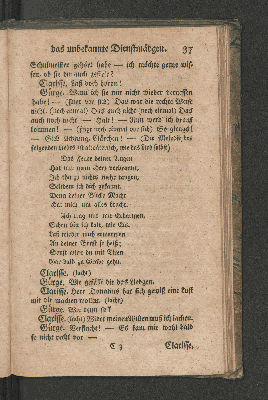 das unbekannte Dienstmädgen. 37
Schulmeister gehört habe — ich möchte gerne wis-
sen, ob sie die auch
Clarisse. Laß doch hören!
Görge. Wann ich sie nur nicht wieder vergessen
habe! — (singt vor sich) Das war die rechte Weise
nicht. (noch einmal) Das auch nicht (noch einmal) Das
auch noch nicht — Halt! — Nun werd ich drauf
kommen! — (singt noch einmal vor sich) So gieng's!
— Gieb Achtung Clärchen! — (Die Melodie des
folgenden Liedes ist
Das Feuer deiner Augen
Hat mir mein Herz verbrannt,
Ich
Seitdem ich dich gekannt.
Denn deiner Blicke Macht
Hat mich um alles bracht.
Ich mag mit mir
Schon bin ich kalt, wie Eis.
Laß wieder mich erwärmen
An deiner Brust so heiß;
Sonst wirst du mit Ihren
Gar bald zu Grabe gehn.
Clarisse. (lacht)
Görge. Wie gefällt dir das Liedgen.
Clarisse. Herr Donatius hat sich gewiß eine Lust
mit dir machen wollen. (lacht)
Görge. Wie denn so?
Clarisse. (lacht) Wider meinen Willen muß ich lachen.
Görge. Verflucht! — Es kam mir wohl bald
so nicht recht vor —
C 3 Clarisse.